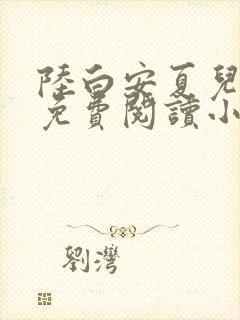 陸白安夏兒
免費閱讀小
劉灣